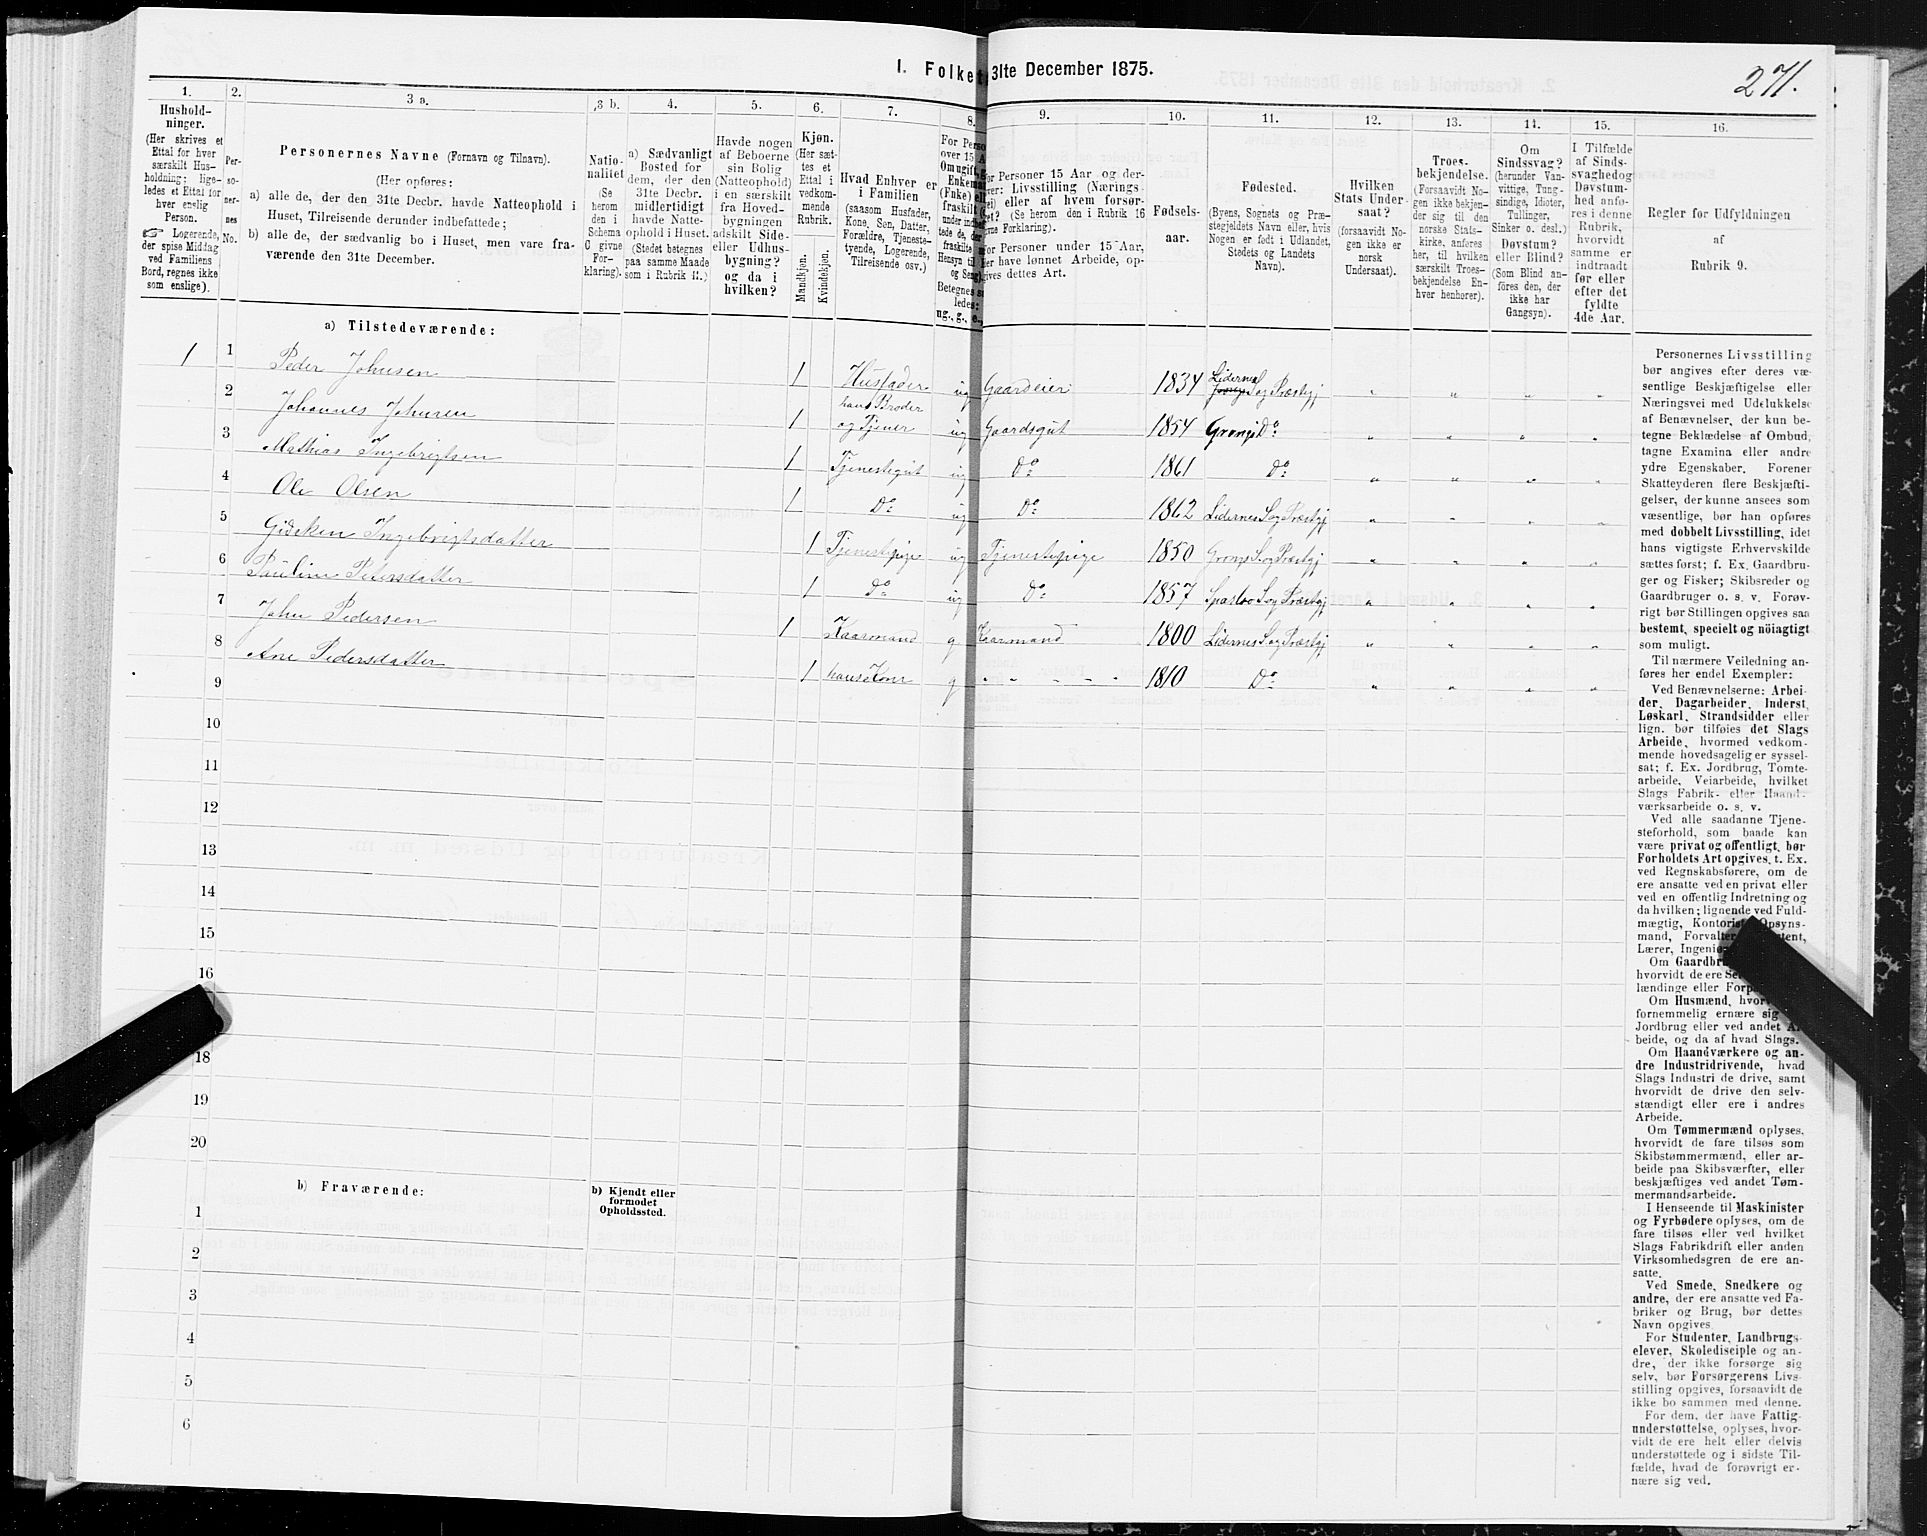 I. Folket
31te December 1875.
271.
1.
Hushold-
ninger.
(Her skrives et
Ettal for hver
særskilt Hus-
holdning; lige-
ledes et Ettal for
hver enslig
Person.
Logerende,
der spise Middag
ved Familiens
Bord, regnes ikke
som enslige).
2.
Per-
so-
ner-
nes
No.
3 a.
Personernes Navne (Fornavn og Tilnavn).
(Her opføres:
a) alle de, der den 31te Decbr. havde Natteophold i
Huset, Tilreisende derunder indbefattede;
b) alle de, der sædvanlig bo i Huset, men vare fra-
værende den 31te December.
3 b.
Natio-
nalitet
(Se
herom
den i
Schema
C givne
For-
klaring).
4.
a) Sædvanligt
Bosted for
dem, der den
31te Decbr.
midlertidigt
havde Natte-
ophold i Huset.
(Stedet betegnes
paa samme Maade
som i Rubrik 11.)
5.
Havde nogen
af Beboerne
sin Bolig
(Natteophold)
i en særskilt
fra Hoved-
bygningen
adskilt Side-
eller Udhus-
bygning?
og da i
hvilken?
6.
Kjøn.
(Her sæt-
tes et
Ettal i
vedkom-
mende
Rubrik.
Mandkjøn.
Kvindekjøn.
7.
Hvad Enhver er
i Familien
(saasom Husfader,
Kone, Søn, Datter,
Forældre, Tjeneste-
tyende, Logerende,
Tilreisende osv.)
8.
For Perso
over 15 A
Om ugift, g
Enkeman
(Enke) el
fraskilt
Hensyn til
og Seng
Betegnes s
ledes:
ug., g., e.,
9.
For Personer 15 Aar og der-
over: Livsstilling (Nærings-
vei) eller af hvem forsør-
get? (Se herom den i Rubrik 16
givne Forklaring).
For Personer under 15 Aar,
der have lønnet Arbeide, op-
gives dettes Art.
10.
Fødsels-
aar.
11.
Fødested.
(Byens, Sognets og Præ-
stegjeldets Navn eller, hvis
Nogen er født i Udlandet,
Stedets og Landets
Navn).
12.
Hvilken
Stats Under-
saat?
(forsaavidt No-
gen ikke er
norsk
Undersaat).
13.
Troes-
bekjendelse.
(Forsaavidt No-
gen ikke bekjen-
der sig til den
norske Stats-
kirke, anføres
her, til hvilken
særskilt Troes-
bekjendelse En-
hver henhører).
14.
Om
Sindssvag?
(herunder Van-
vittige, Tung-
sindige, Idioter,
Tullinger,
Sinker o. desl.)
Døvstum?
eller Blind?
(Som Blind an-
føres den, der
ikke har
Gangsyn).
15.
I Tilfælde
af Sinds-
svaghed og
Døvstum-
hed anfø-
res i denne
Rubrik,
hvorvidt
samme er
indtraadt
før eller
efter det
fyldte
4de Aar.
16.
Regler for Udfyldningen
af
Rubrik 9.
a) Tilstedeværende:
1 1 Peder Johnsen 1 Husfader ug Gaardeier 1834 Lidernes S og Præstgj " " " "
2 Johannes Johnsen 1 hans Broder og Tjener ug Gaardsgut 1854 Grong Do " " " "
3 Mathias Ingebrigtsen 1 Tjenestegut ug Do 1861 Do " " " "
4 Ole Olsen 1 Do ug Do 1862 Lidernes S og Præstgj " " " "
5 Gidsken Ingebrigtsdatter 1 Tjenestepige ug Tjenestepige 1850 Grongs S og Præstgj " " " "
6 Pauline Petersdatter 1 Do ug Do 1857 S og Præstgj " " " "
7 John Pedersen 1 Kaarmand g Kaarmand 1800 Lidernes S og Præstgj " " " "
8 Ane Pedersdatter 1 hans Kone g " " " " " 1810 Do " " " "
9
10
11
12
13
14
15
16
18
19
20
b) Fraværende:
b) Kjendt eller
formodet
Opholdssted.
1
2
3
4
5
6
Personernes Livsstilling
bør angives efter deres væ-
sentlige Beskjæftigelse eller
Næringsvei med Udelukkelse
af Benævnelser, der kun be-
tegne Beklædelse af Ombud,
tagne Examina eller andre
ydre Egenskaber. Forener
Skatteyderen flere Beskjæfti-
gelser, der kunne ansees som
væsentlige, bør han opføres
med dobbelt Livsstilling, idet
hans vigtigste Erhvervskilde
sættes først; f. Ex. Gaardbru-
ger og Fisker; Skibsreder og
Gaardbruger o. s. v. Forøv-
rigt bør Stillingen opgives saa
bestemt, specielt og nöiagtigt
som muligt.
Til nærmere Veiledning an-
føres her endel Exempler:
Ved Benævnelserne: Arbei-
der, Dagarbeider, Inderst,
Løskarl, Strandsidder eller
lign. bør tilføies det Slags
Arbeide, hvormed vedkom-
mende hovedsagelig er syssel-
sat; f. Ex. Jordbrug, Tomte-
arbeide, Veiarbeide, hvilket
Slags Fabrik- eller Haand-
værksarbeide o. s. v.
Ved alle saadanne Tjene-
steforhold, som baade kan
være privat og offentligt, bør
Forholdets Art opgives, t. Ex.
ved Regnskabsførere, om de
ere ansatte ved en privat eller
ved en offentlig Indretning og
da hvilken; lignende ved Fuld-
mægtig, Kontorist, Opsyns-
mand, Forvalter, tent,
Lærer, Ingeniø
Om Gaardbr
hvorvidt de ere Se
lændinge eller Forp
Om Husmænd, hvor
fornemmelig ernære sig
Jordbrug eller ved andet Ar-
beide, og da af hvad Slags.
Om Haandværkere og an-
dre Industridrivende, hvad
Slags Industri de drive, samt
hvorvidt de drive den selv-
stændigt eller ere i andres
Arbeide.
Om Tømmermænd oplyses,
hvorvidt de fare tilsøs som
Skibstømmermænd, eller ar-
beide paa Skibsværfter, eller
beskjæftiges ved andet Tøm-
mermandsarbeide.
I Henseende til Maskinister
og Fyrbødere oplyses, om de
fare tilsøs eller ved hvilket
Slags Fabrikdrift eller anden
Virksomhedsgren de ere an-
satte.
Ved Smede, Snedkere og
andre, der ere ansatte ved Fa-
briker og Brug, bør dettes
Navn opgives.
For Studenter, Landbrugs-
elever, Skoledisciple og an-
dre, der ikke forsørge sig
selv, bør Forsørgerens Livs-
stilling opgives, forsaavidt de
ikke bo sammen med denne.
For dem, der have Fattig-
understøttelse, oplyses, hvor-
vidt de ere helt eller delvis
understøttede og i sidste Til-
fælde, hvad de forøvrigt er-
nære sig ved.